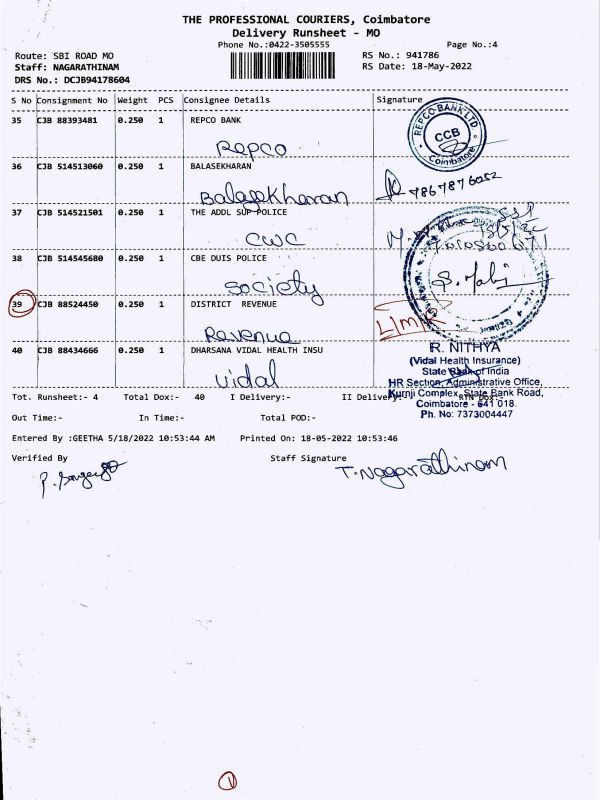 THE PROFESSIONAL COURIERS, Coimbatore
Delivery Runsheet - MO
Phone No.:0422-3505555 Page No.:4
Route: SBI ROAD MO RS No.: 941786
Staff: NAGARATHINAM RS Date: 18-May-2022
DRS No.: DCJB94178604
S No Consignment No Weight PCS Consignee Details Signature
35 CJB 88393481 0.250 1 REPCO BANK
Repco
REPCO BANK LTD
CCB
Coimbatore
36 CJB 514513060 0.250 1 BALASEKHARAN
Balasekharan 9867876052
37 CJB 514521501 0.250 1 THE ADDL SUP POLICE
CWC
38 CJB 514545680 0.250 1 CBE DUIS POLICE
Society
39 CJB 88524450 0.250 1 DISTRICT REVENUE
Revenue
40 CJB 88434666 0.250 1 DHARSANA VIDAL HEALTH INSU
Vidal
R. NITHYA
(Vidal Health Insurance)
State Bank of India
HR Section, Administrative Office,
Kurnji Complex, State Bank Road,
Coimbatore - 641 018.
Ph. No: 7373004447
Tot. Runsheet:- 4 Total Dox:- 40 I Delivery:- II Delivery:- RTN Dox:-
Out Time:- In Time:- Total POD:-
Entered By :GEETHA 5/18/2022 10:53:44 AM Printed On: 18-05-2022 10:53:46
Verified By Staff Signature
T. Nagarathinam
1